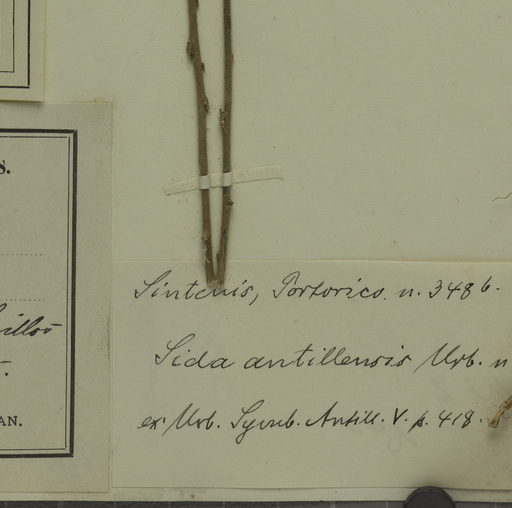 S.
AN.
Sintenis, Portorico. n. 348 b.
Sida antillensis Urb. n
ex Urb. Symb. Antill. V. p. 418.